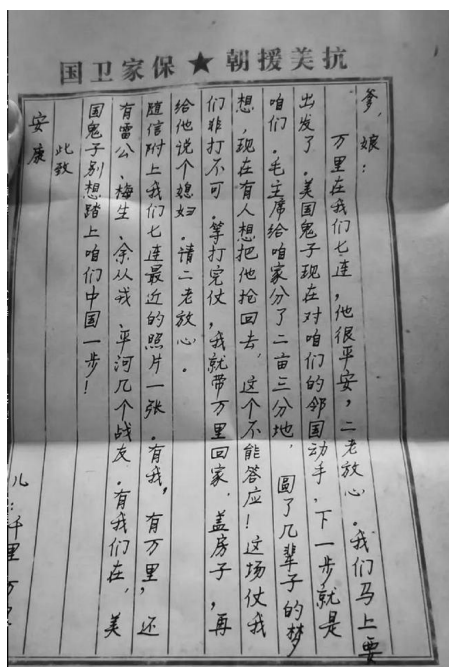 抗美援朝★保家卫国
爹,娘:
万里在我们七连,他很平安,二老放心.我们马上要
出发了.美国鬼子现在对咱们的邻国动手,下一步就是
咱们.毛主席给咱家分了二亩三分地,圆了几辈子的梦
想,现在有人想把他抢回去,这个不能答应!这场仗我
们非打不可.等打完仗,我就带万里回家.盖房子,再
给他说个媳妇.请二老放心.
随信附上我们七连最近的照片一张.有我,有万里,还
有雷公、梅生、余从戎、平河几个战友.有我们在,美
国鬼子别想踏上咱们中国一步!
此致
安康
儿:千里 万